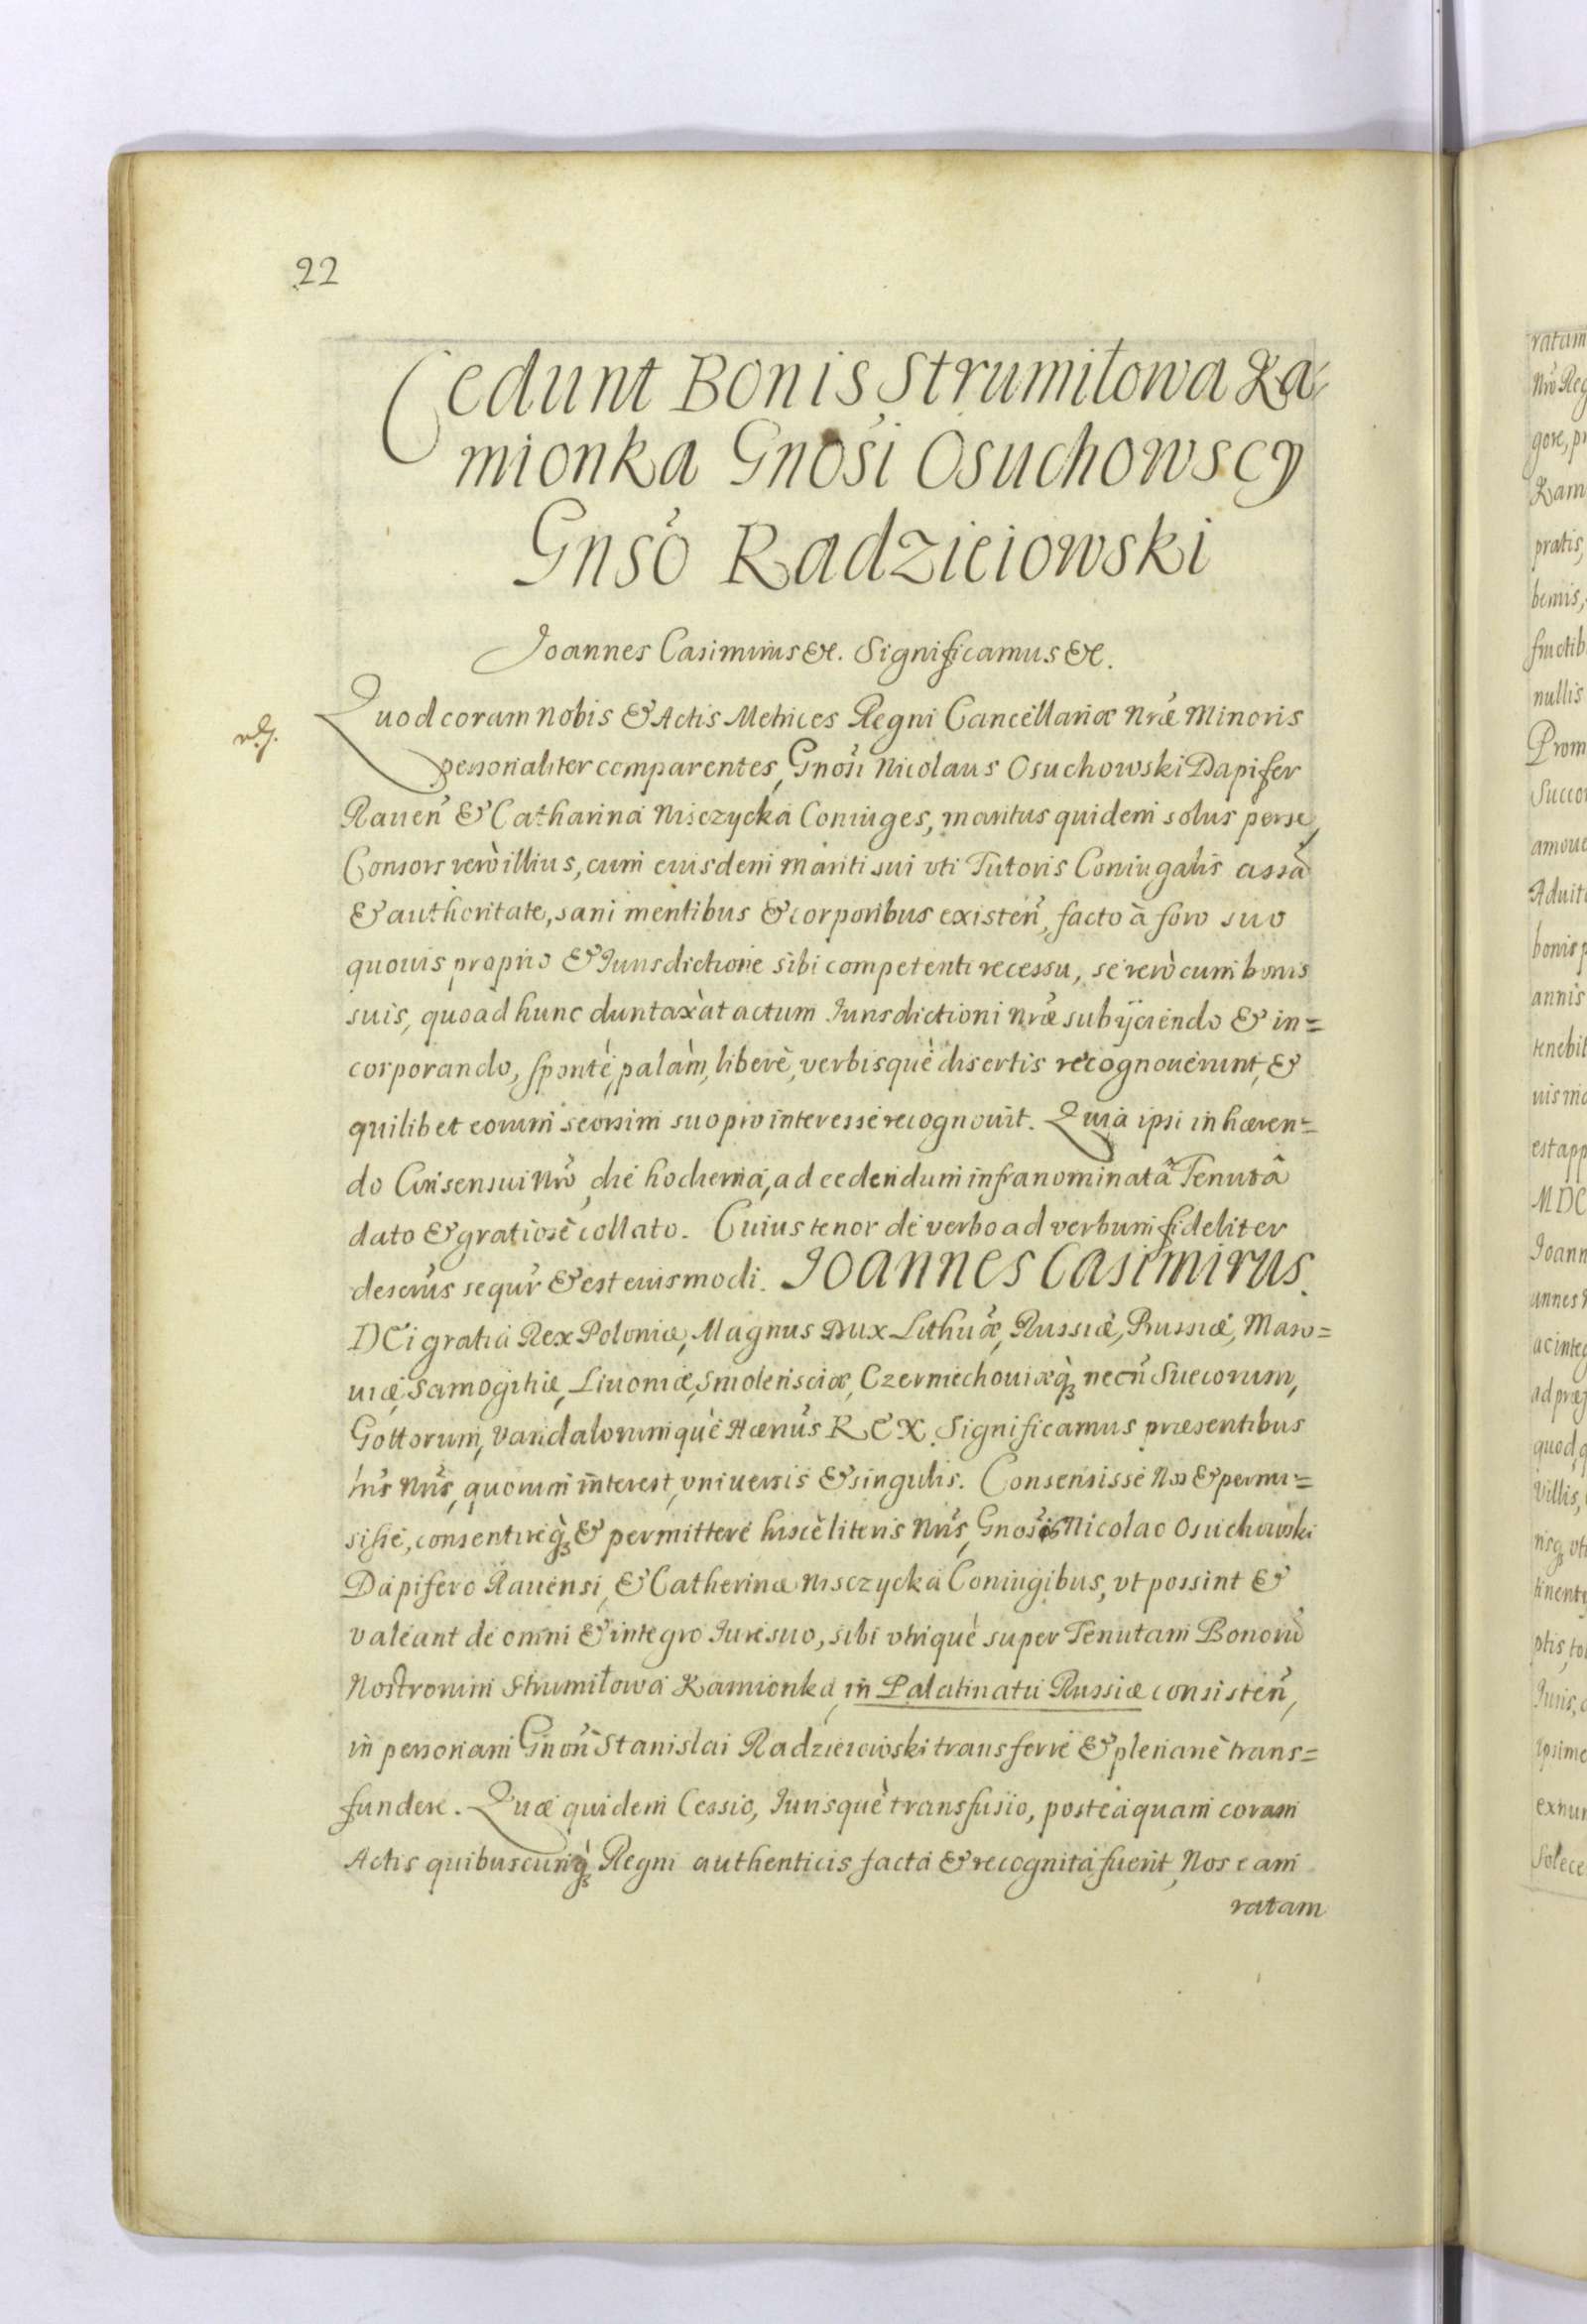 22
Cedunt Bonis Strumiłowa Ka-
mionka Gnosi Osuchowscy
Gnso Radzieiowski
Joannes Casimirus &c. Significamus &c.
Quod coram nobis & Actis Metrices Regni Cancellariæ Nræ Minoris
personaliter comparentes, Gnosi Nicolaus Osuchowski Dapifer
Rauen & Catharina Misczycka Coniuges, maritus quidem solus per se,
Consors verò illius, cum euisdem mariti sui vti Tutoris Coniugalis assã
& authoritate, sani mentibus & corporibus existen, facto à foro suo
quouis proprio & Iurisdictione sibi competenti recessu, se verò cum bonis
suis, quoad hunc duntaxàt actum Iurisdictioni nræ subijciendo & in=
corporando, spontè, palàm, liberè, verbisquè disertis recognouerunt, &
quilibet eorum seorsim suo pro interesse recognouit. Quia ipsi inhæren=
do Consensui Nro, die hodierna, ad cedendum infranominatã Tenutã
dato & gratiosè collato. Cuius tenor de verbo ad verbum fideliter
descrus sequr & est euismodi. Joannes Casimirus.
DEi gratia Rex Poloniæ, Magnus Dux Lithuæ, Russiæ, Prussiæ, Maso=
uiæ, Samogitiæ, Liuoniæ, Smolensciæ, Czerniechouiæq; necn Suecorum,
Gottorum, Vandalorumquè Hærius REX. Significamus præsentibus
lris Nris, quorum interest, vniuersis & singulis. Consensisse Nos & permi=
sisse, consentireq; & permittere hiscè literis Nris, Gnosis Nicolao Osuchowski
Dapifero Rauensi, & Catherinæ Misczycka Coniugibus, vt possint &
valeant de omni & integro Iure suo, sibi vtriquè super Tenutam Bonorũ
Nostrorum Strumiłowa Kamionka, in Palatinatu Russiæ consisten,
in personam Gnosi Stanislai Radzieiowski transferre & plenariè trans=
fundere. Quæ quidem Cessio, Iurisquè transfusio, posteaquam coram
Actis quibuscunq; Regni authenticis facta & recognita fuerit, Nos eam
ratam